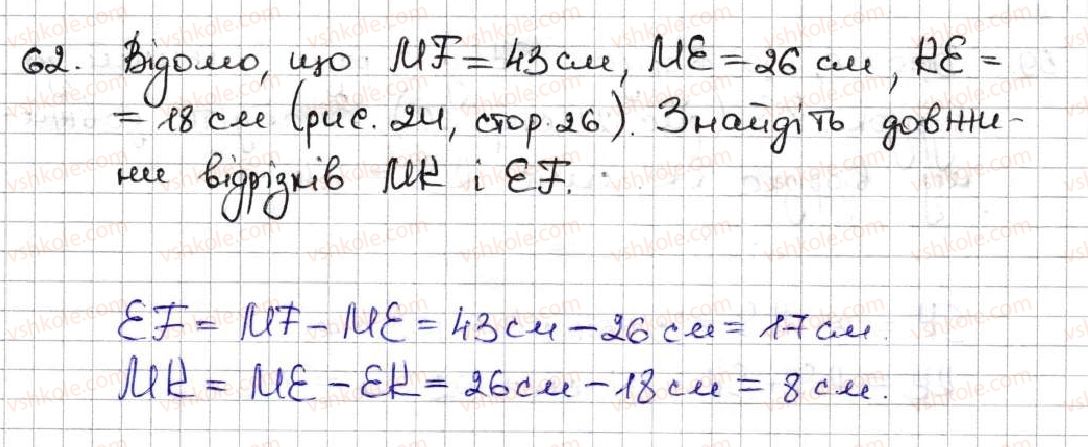 62. Відомо, що MF = 43 см, ME = 26 см, KE =
= 18 см (рис. 24, стор. 26). Знайдіть довжи-
ни відрізків MK і EF.
EF = MF - ME = 43 см - 26 см = 17 см.
MK = ME - EK = 26 см - 18 см = 8 см.